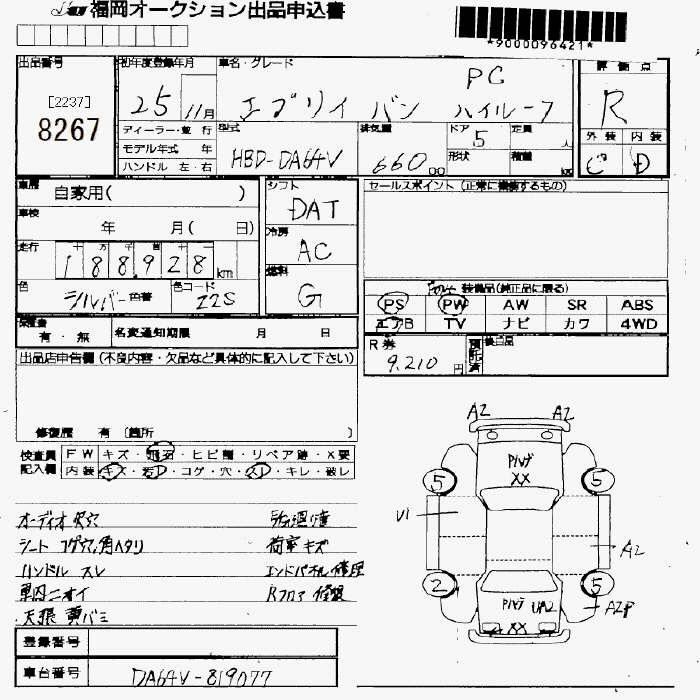 福岡オークション出品申込書
*9000096421*
出品番号
[2237]
8267
初年度登録年月
25 11月
車名・グレード
PC
エブリイ バン ハイルーフ
評価点
R
外装 内装
C D
ディーラー・並行
モデル年式 年
ハンドル 左・右
型式
HBD-DA64V
排気量
660 cc
ドア
5
定員
人
形状
積載
kg
車歴
自家用( )
車検
年 月( 日)
走行
十 万 千 百 十
188,928 km
色
シルバー 色替
色コード
Z2S
シフト
DAT
冷房
AC
燃料
G
セールスポイント (正常に機能するもの)
装備品(純正品に限る)
PS PW AW SR ABS
エアB TV ナビ カワ 4WD
保証書
有・無
名変通知期限 月 日
R券
9,210 円
預託済
後日品
出品店申告欄 (不良内容・欠品など具体的に記入して下さい)
修復歴 有 〔箇所 〕
検査員記入欄
FW キズ・飛石・ヒビ割・リペア跡・X要
内装 キズ・汚れ・コゲ・穴・スレ・キレ・破レ
オーディオ 欠穴
シート コゲ穴、角ヘタリ
荷室キズ
ハンドル スレ
エンドパネル修理
車内ニオイ
Rフロア 修理
天張 黄バミ
登録番号
車台番号
DA64V-819077
A2 A2
パルゲ
XX
5 5
U1
A2
2 5
パルゲ UA2
A2P
XX